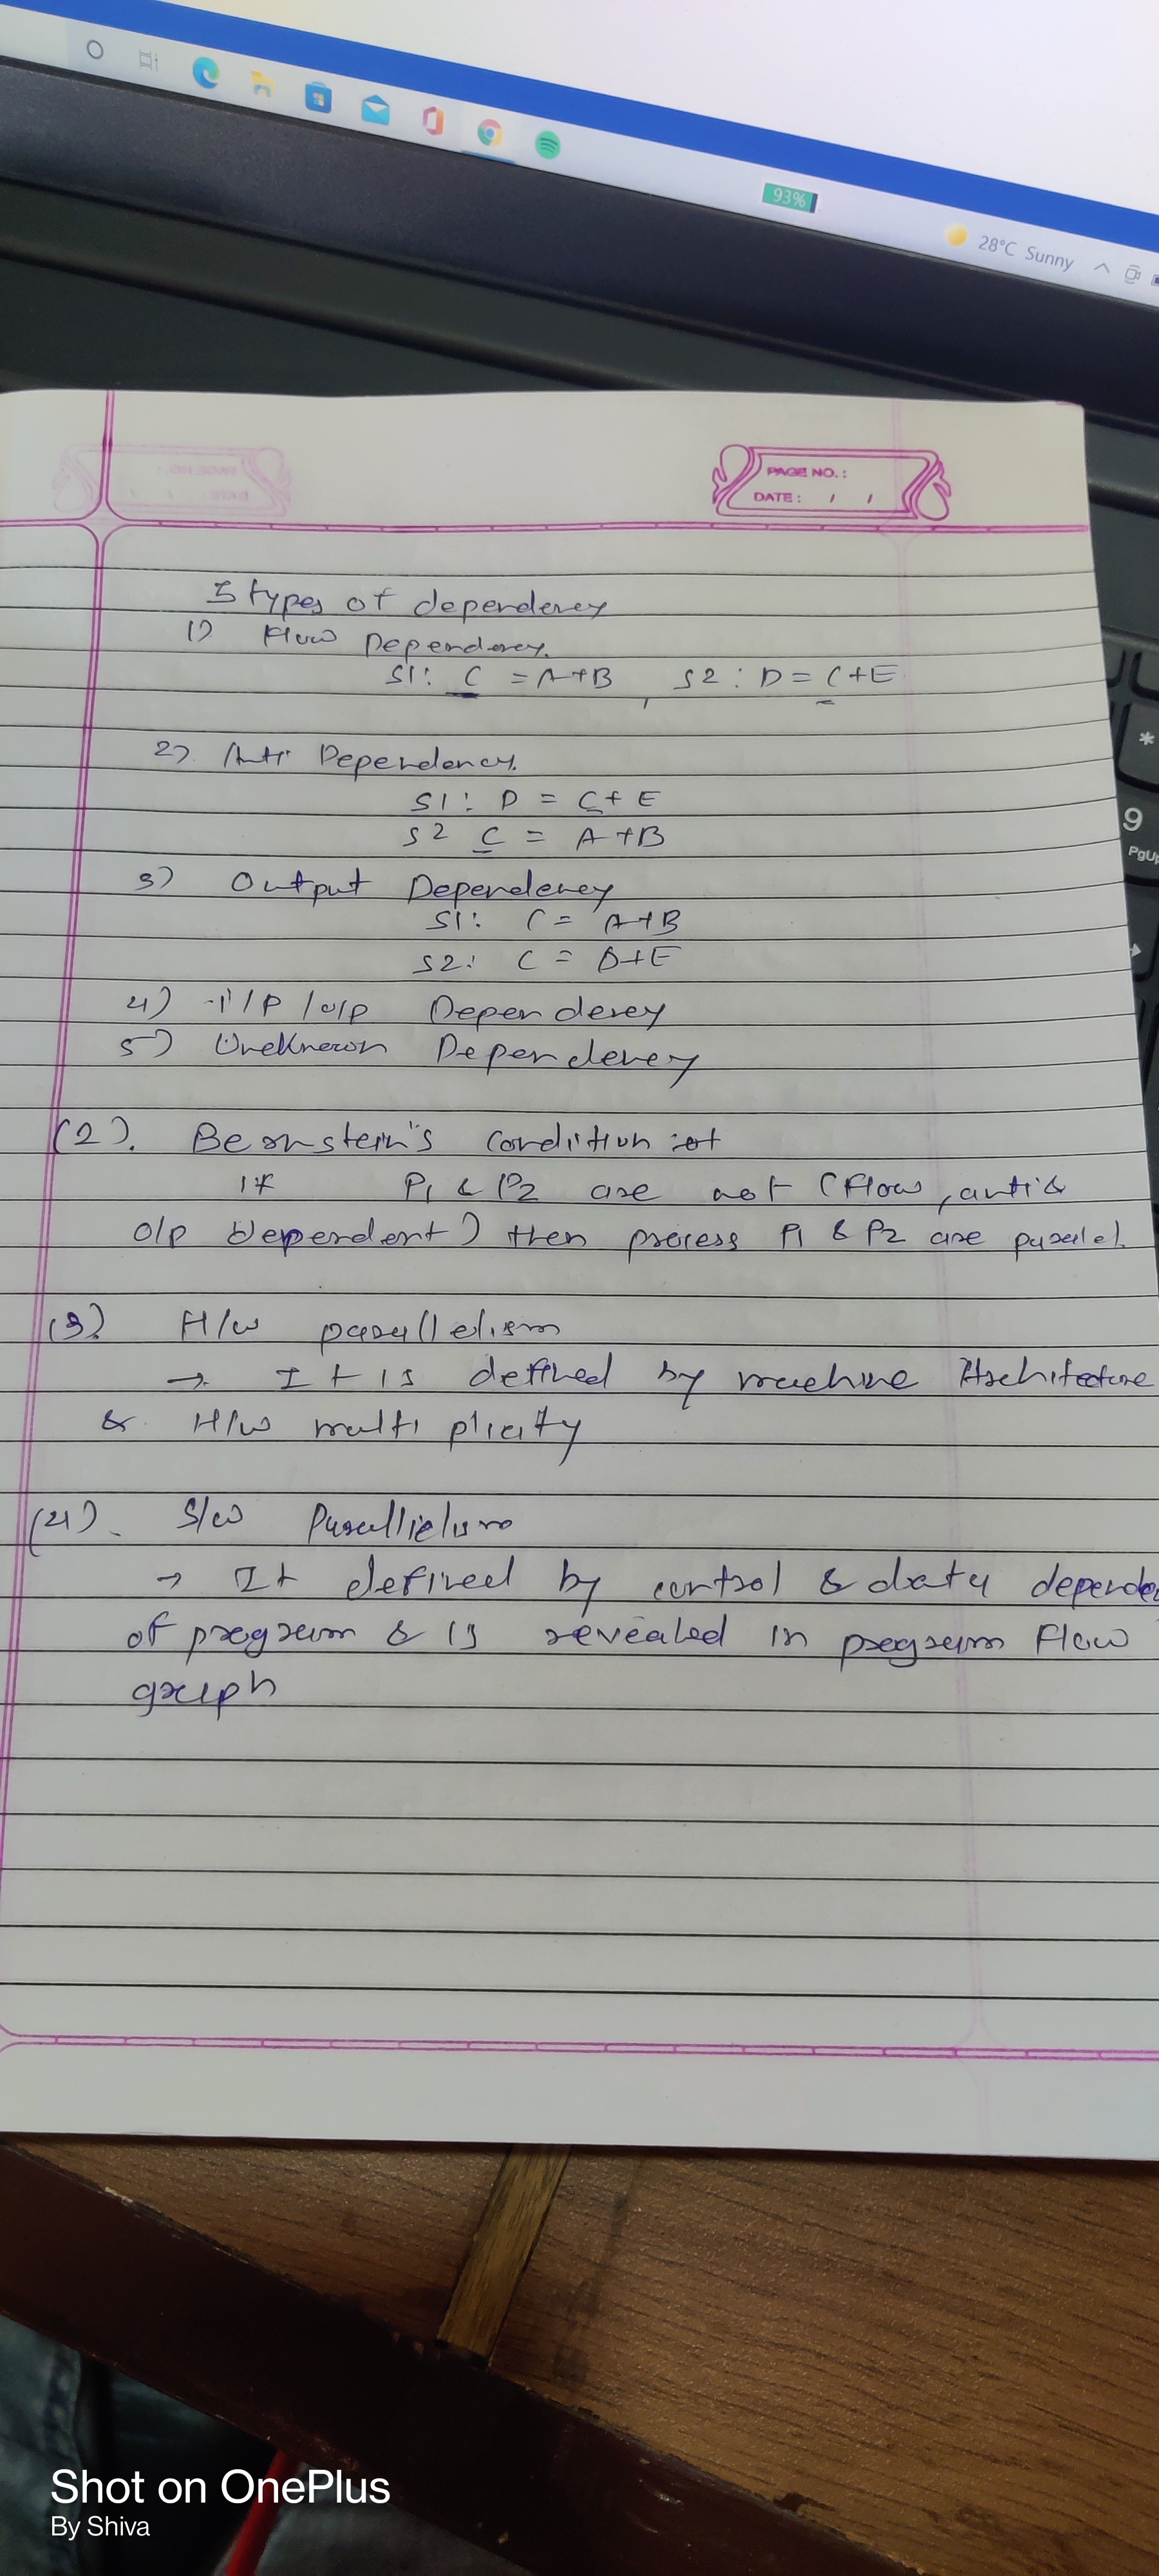 93%
28°C Sunny
PAGE NO.:
DATE: / /
5 types of dependency
1) Flow Dependency.
S1: C = A+B , S2: D = C+E
2) Anti Dependency.
S1: D = C+E
S2 C = A+B
3) Output Dependency
S1: C = A+B
S2: C = D+E
4) I/P /o/p Dependency
5) Unknown Dependency
(2). Bernstein's condition
If P1 & P2 are not (Flow, anti &
O/p dependent) then process P1 & P2 are parallel.
(3) H/w parallelism
→ It is defined by machine Architecture
& H/w multiplicity
(4). S/w Parallielism
→ It defined by control & data depende
of program & is revealed in program Flow
graph
*
9
PgUp
Shot on OnePlus
By Shiva